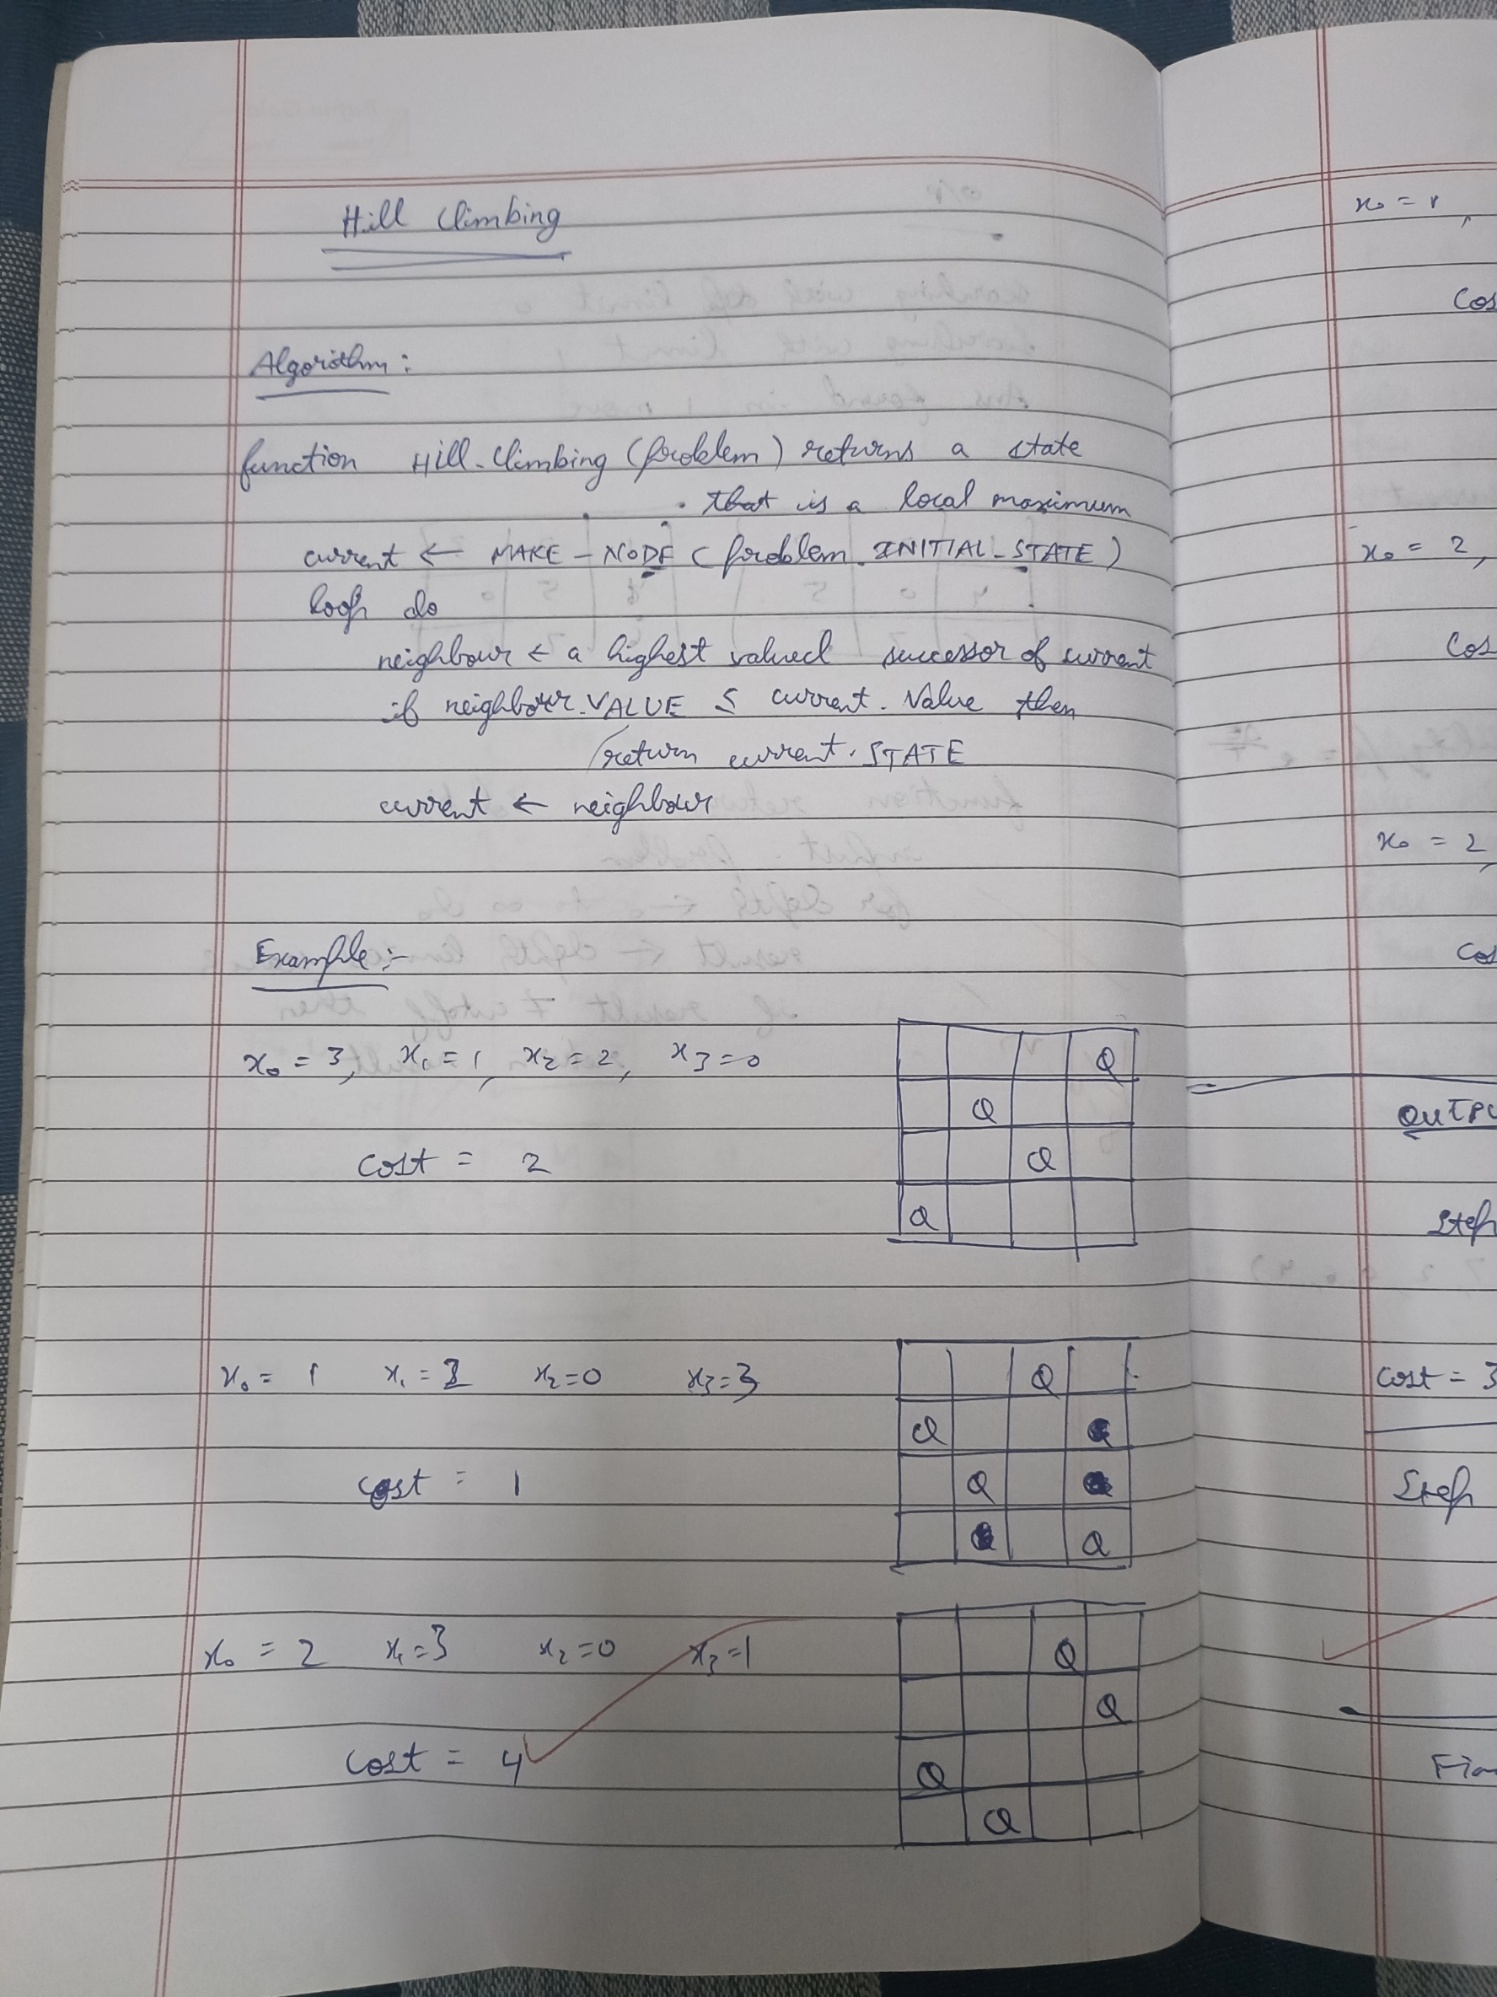 Hill Climbing
Algorithm:
function Hill-Climbing (problem) returns a state
that is a local maximum
current ← MAKE-NODE (problem. INITIAL-STATE)
loop do
neighbour ← a highest valued successor of current
if neighbour.VALUE ≤ current. Value then
return current. STATE
current ← neighbour
Example:-
x₀ = 3, x₁ = 1, x₂ = 2, x₃ = 0
Q
Q
cost = 2
Q
Q
x₀ = 1 x₁ = 2 x₂ = 0 x₃ = 3
Q
Q
cost = 1
Q
Q
x₀ = 2 x₁ = 3 x₂ = 0 x₃ = 1
Q
Q
cost = 4
Q
Q
x₀ = 1,
Cos
x₀ = 2,
Cos
x₀ = 2,
Cos
OUTPU
Step
Cost = 3
Step